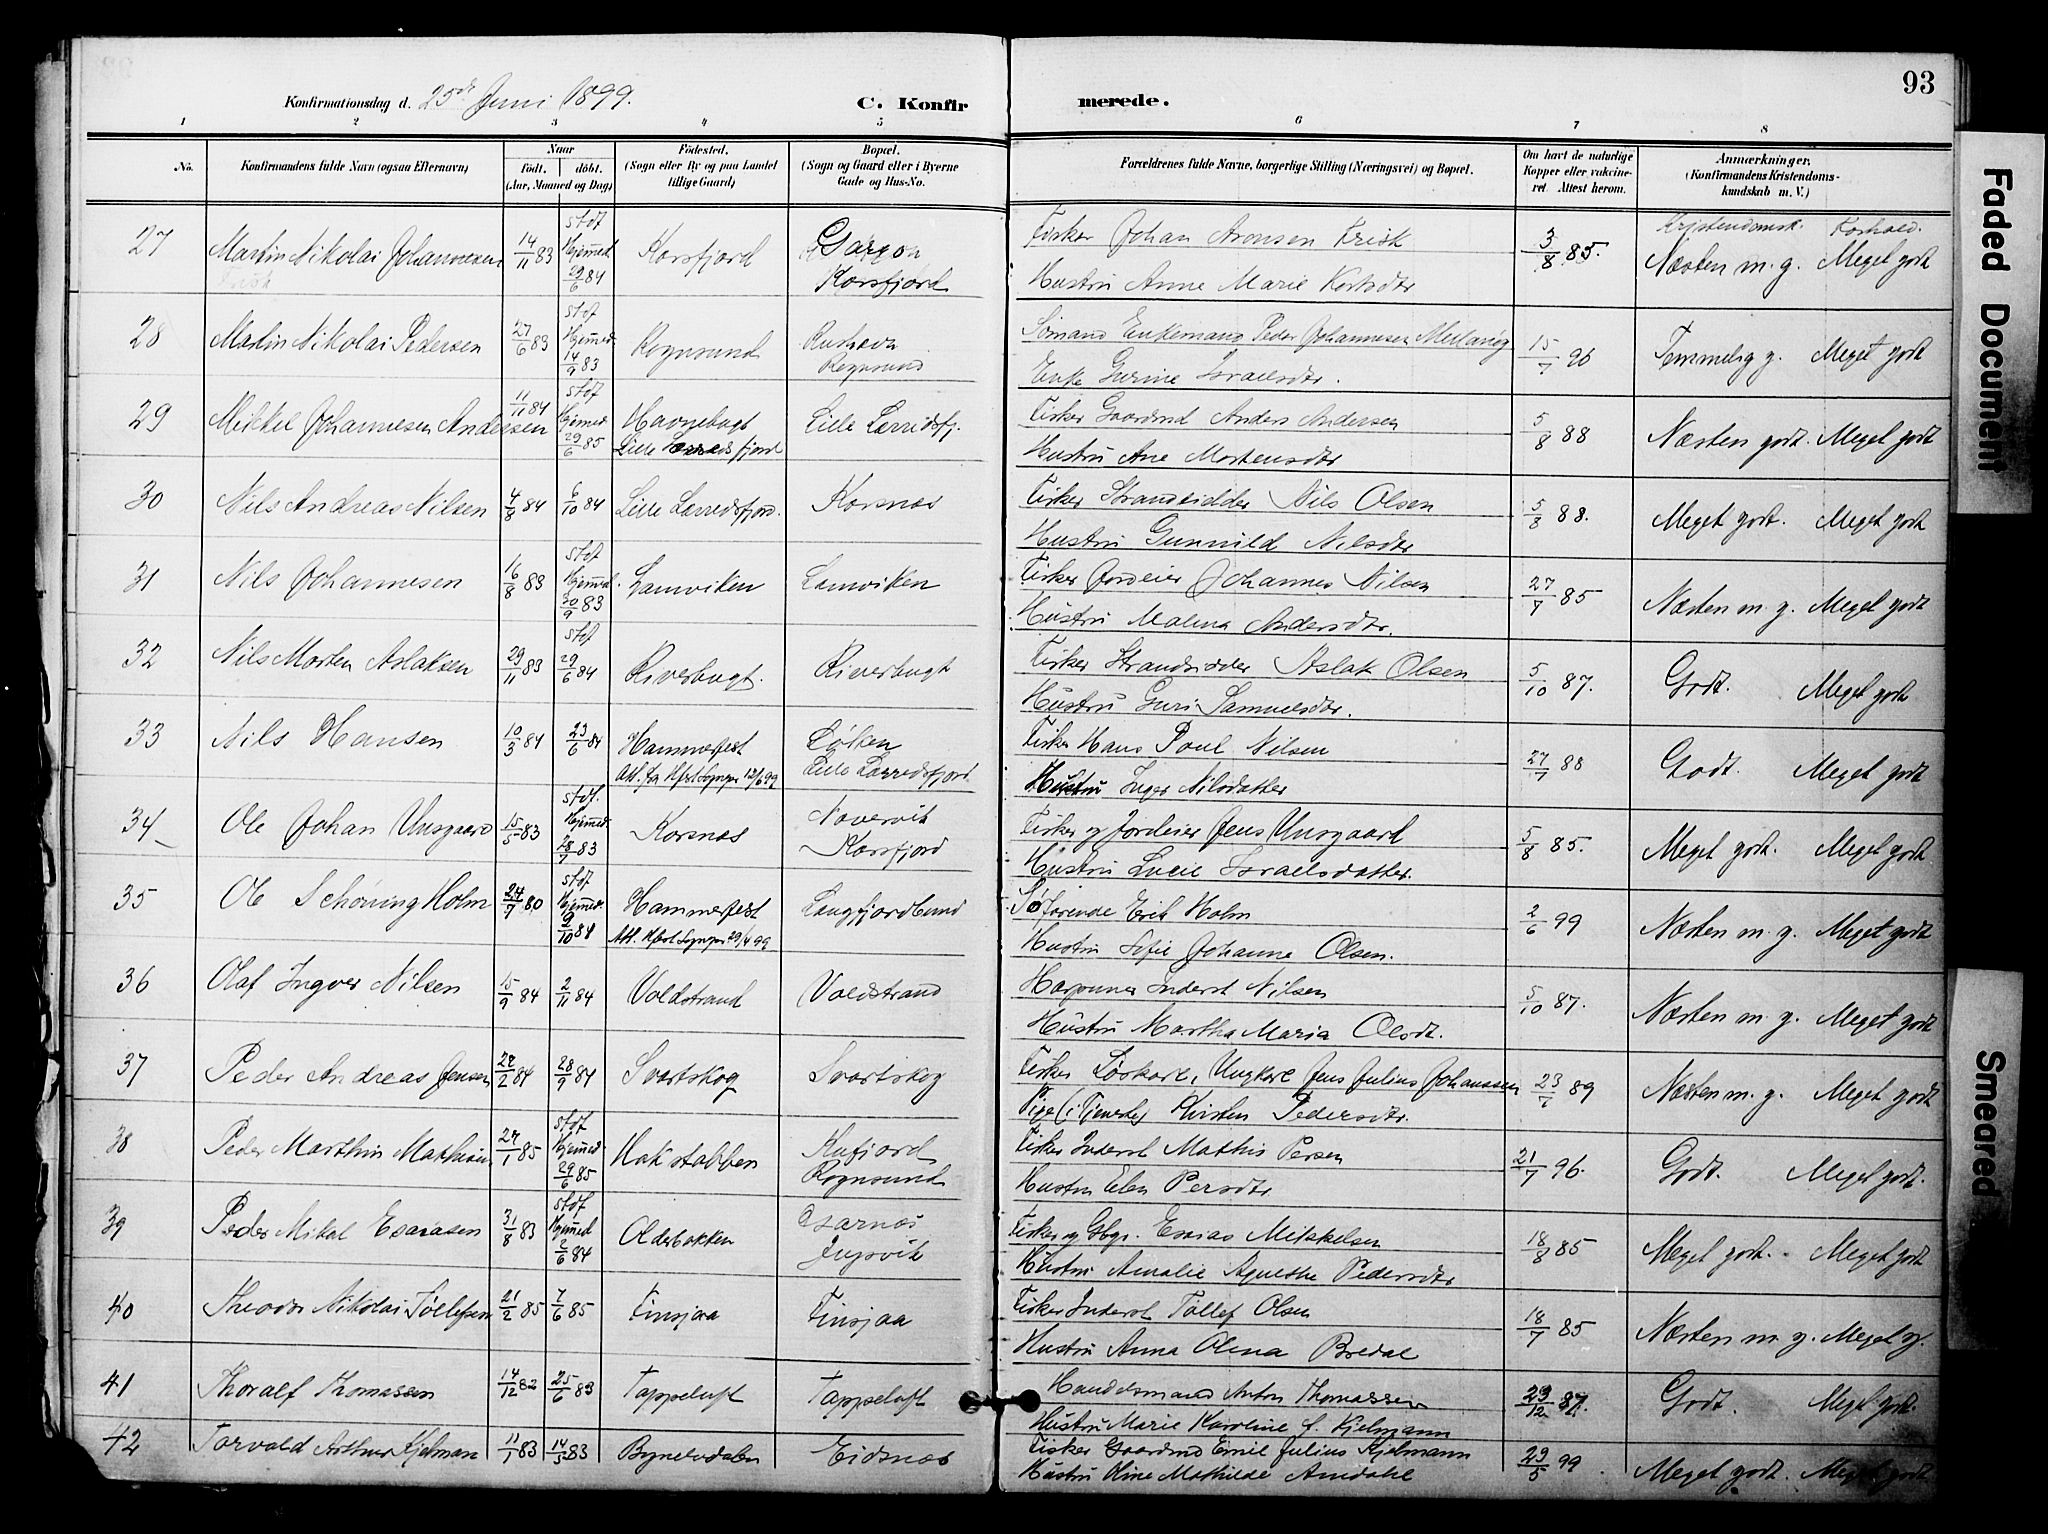 93
Konfirmationsdag d. 25de Juni 1899.
C. Konfirmerede.
1 2 3 4 5 6 7 8
No.
Konfirmandens fulde Navn (ogsaa Efternavn).
Naar
født. døbt.
(Aar, Maaned og Dag)
Fødested.
(Sogn eller By og paa Landet
tillige Gaard)
Bopæl.
(Sogn og Gaard eller i Byerne
Gade og Hus-No.
Forældrenes fulde Navne, borgerlige Stilling (Næringsvei) og Bopæl.
Om havt de naturlige
Kopper eller vakcine-
ret. Attest herom.
Anmærkninger.
(Konfirmandens Kristendoms-
kundskab m. V.)
Kristendomsk. Forhold.
27 Martin Nikolai Johannesen 14/11 83 stdf Hjemmed. 29/6 84 Korsfjord Korsfjord
Frisk
Fisker Johan Aronsen Frisk
Hustru Anne Marie
3/8 85. Næsten m. g. Meget godt
28 Martin Nikolai Pedersen 27/6 83 stdf Hjemmed. 14/9 83 Rognsund Rognsund
Enkemand Peder Johannesen
Enke Gurine Israelsdtr.
15/7 96 Temmelig g. Meget godt
29 Mikkel Johannesen Andersen 11/11 84 stdf Hjemmed. 29/6 85 Havnebugt Lille Lerredsfjord Lille Lerridsfj.
Fisker Gaardmd Anders Andersen
Hustru Ane Mortensdtr
5/8 88 Næsten godt. Meget godt
30 Nils Andreas Nilsen 4/8 84 6/10 84 Lille Lerredsfjord. Korsnes
Fisker Strandsidder Nils Olsen
Hustru Gunnild Nilsdtr
5/8 88. Meget godt. Meget godt
31 Nils Johannesen 16/8 83 stdf Hjemmed. 30/9 83 Lamviken Lamviken
Fisker Jordeier Johannes Nilsen
Hustru Malena Andersdtr.
27/7 85 Næsten m. g. Meget godt
32 Nils Morten Aslaksen 29/11 83 stdf 29/6 84 Riverbugt. Riverbugt
Fisker Strandsidder Aslak Olsen
Hustru Guri Samuelsdtr.
5/10 87. Godt. Meget godt
33 Nils Hansen 10/3 84 23/6 84 Hammerfest Lille Lerredsfjord.
Att. fra Hfest Sognepr 12/6 99
Fisker Hans Poul Nilsen
Hustru Inger Nilsdatter
27/7 88 Godt. Meget godt
34 Ole Johan Unsgaard 15/5 83 stdf. Hjemmed. 28/7 83 Korsnes Korsfjord
Fisker og Jordeier Jens Unsgaard
Hustru Lucie Israelsdatter.
5/8 85. Meget godt. Meget godt.
35 Ole Schøning Holm 24/7 80 stdf Hjemmed. 2/10 84 Hammerfest Langfjordbund
Att. Hfest Sognepr 29/4 99
Søfarende Erik Holm
Hustru Sofie Johanna Olsen.
2/6 99 Næsten m. g. Meget godt
36 Olaf Ingver Nilsen 15/9 84 2/11 84 Voldstrand Voldstrand
Harpuner Inderst Nilsen
Hustru Martha Maria Olsdt.
5/10 87. Næsten m. g. Meget godt
37 Peder Andreas Jensen 22/2 84 28/9 84 Svartskog Svartskog
Fisker Løskarl, Ungkarl Jens Julius Johanssen
Pige (i Tjeneste) Kirsten Pedersdtr.
23/7 89 Næsten m. g. Meget godt
38 Peder Marthin Mathisen 27/1 85 stdf Hjemmed. 29/6 85 Hakstabben Kufjord Rognsund
Fisker Inderst Mathis Persen
Hustru Elen Persdtr
21/7 96. Godt. Meget godt.
39 Peder Mikal Esaiasen 31/8 83 stdf Hjemmed 2/6 84 Olderbakken
Fisker og Gbgr. Esaias Mikkelsen
Hustru Amalie Agnethe Pedersdtr
18/8 85 Meget godt. Meget godt
40 Theodor Nikolai Tollefsen 21/2 85 7/6 85 Finsjaa Finsjaa
Fisker Inderst Tollef Olsen
Hustru Anna Olena Bredal
18/7 85 Næsten m. g. Meget g.
41 Thoralf Thomassen 14/12 82 25/6 83 Tappeluft Tappeluft
Handelsmand Anton Thomassen
Hustru Marie Karoline f. Kjelmann
29/12 87. Godt. Meget godt.
42 Torvald Arthur Kjelman 11/1 83 14/5 83 Eidsnes
Fisker Gaardmd Emil Julius Kjelmann
Hustru Oline Mathilde Amdahl
29/5 99 Meget godt. Meget godt
Faded Document
Smeared